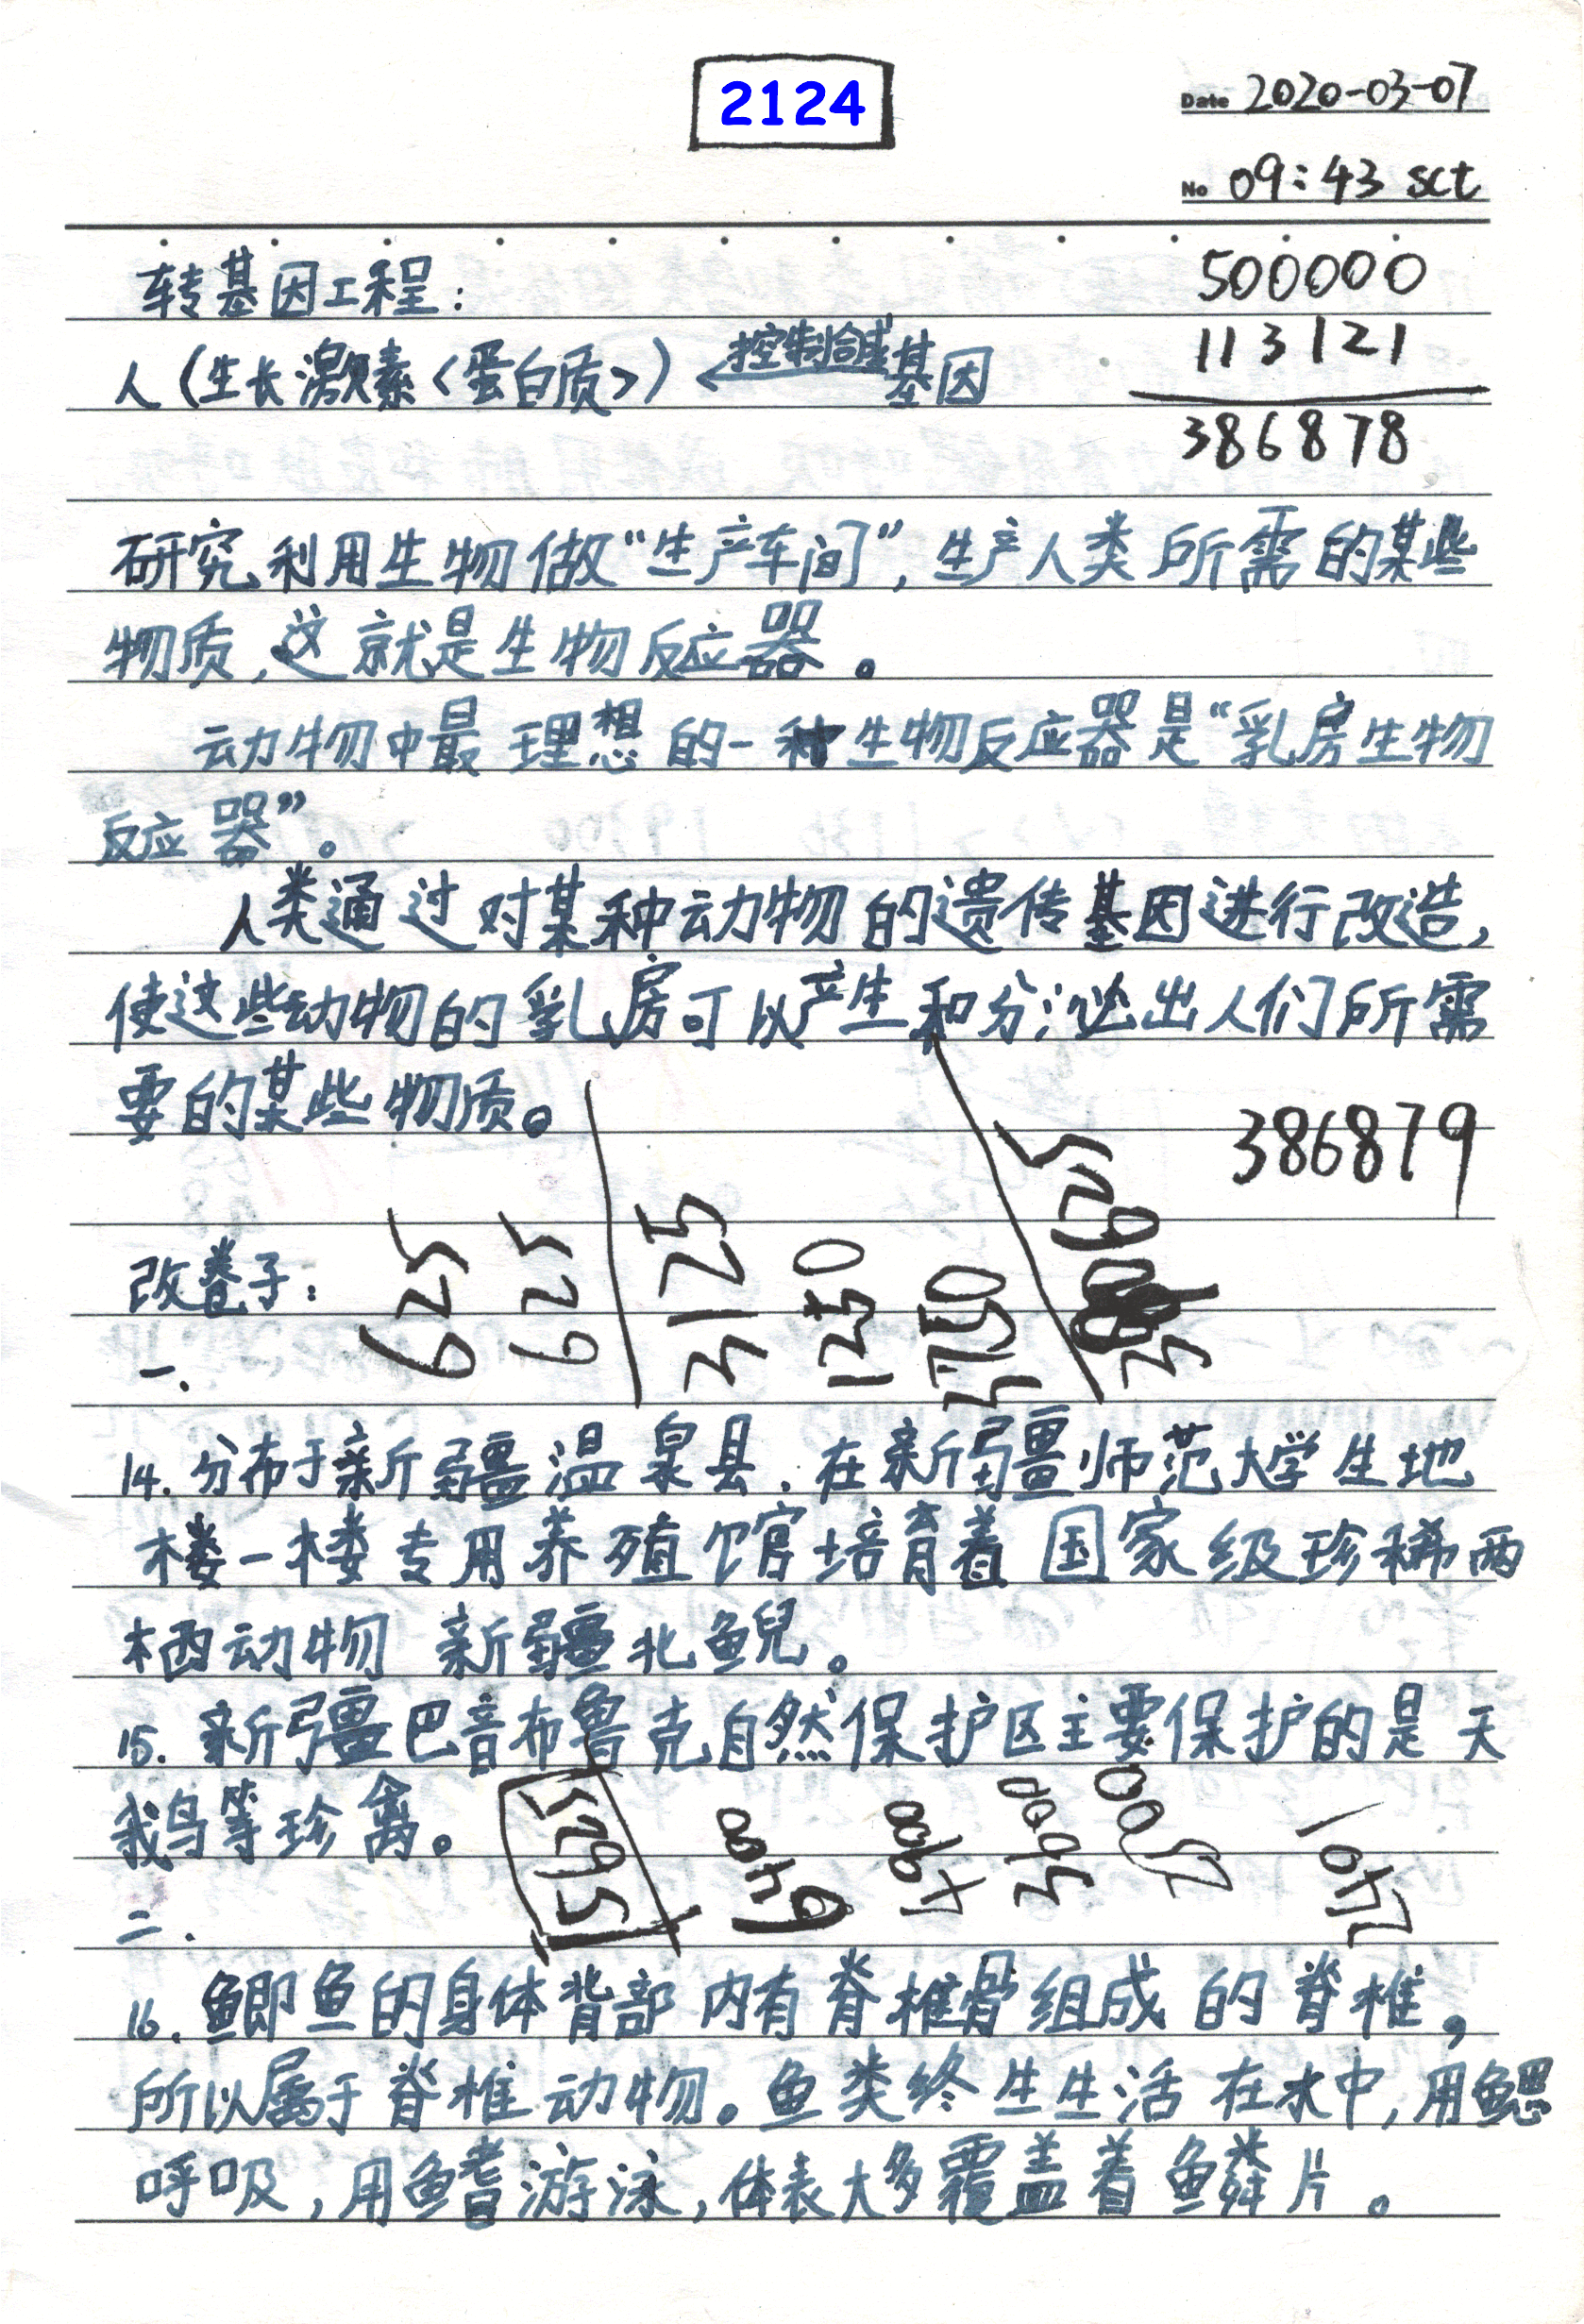 2124
Date 2020-03-07
No 09:43 sct
转基因工程:
500000
113121
386878
人(生长激素<蛋白质>) ← 控制合成 基因
研究利用生物做“生产车间”,生产人类所需的某些
物质,这就是生物反应器。
动物中最理想的一种生物反应器是“乳房生物
反应器”。
人类通过对某种动物的遗传基因进行改造,
使这些动物的乳房可以产生和分泌出人们所需
要的某些物质。
386879
改卷子:
625
625
3125
1250
3750
一.
14. 分布于新疆温泉县.在新疆师范大学生地
楼一楼专用养殖馆培育着国家级珍稀两
栖动物 新疆北鲵。
15. 新疆巴音布鲁克自然保护区主要保护的是天
鹅等珍禽。
15625
6400
4900
3600
2500
1047
二.
16. 鲫鱼的身体背部内有脊椎骨组成的脊椎,
所以属于脊椎动物。鱼类终生生活在水中,用鳃
呼吸,用鳍游泳,体表大多覆盖着鳞片。